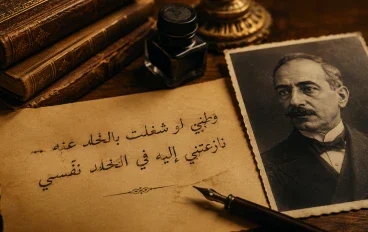 وطني لو شغلت بالخلد عنه ...
نازعتني إليه في الخلد نفسي